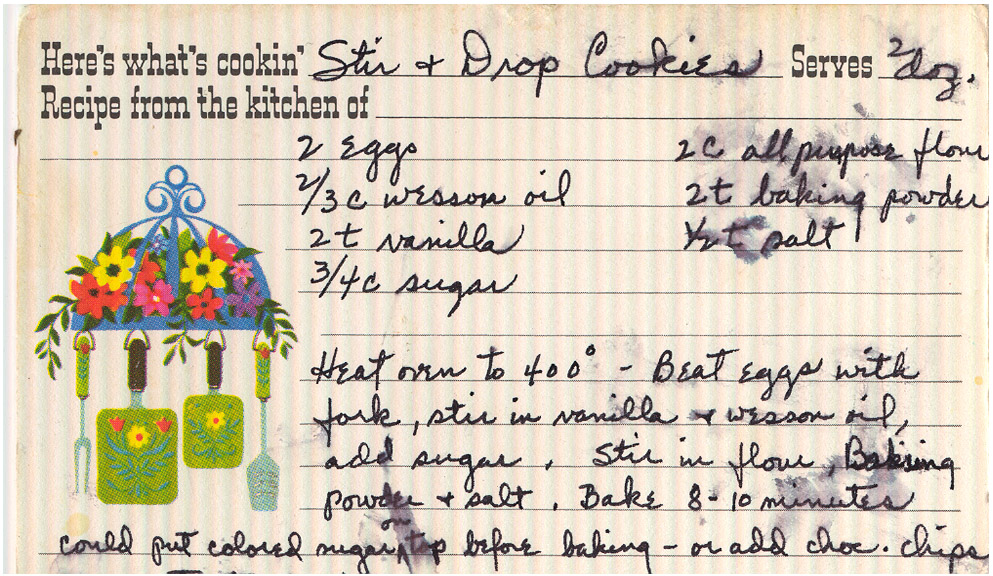 Here's what's cookin' Stir & Drop Cookies Serves 2 doz.
Recipe from the kitchen of
2 eggs 2 c all purpose flour
2/3 c wesson oil 2 t baking powder
2 t vanilla 1/2 t salt
3/4 c sugar
Heat oven to 400° - Beat eggs with
fork, stir in vanilla & wesson oil,
add sugar. Stir in flour, Baking
powder & salt. Bake 8-10 minutes
could put colored sugar on top before baking - or add choc. chips